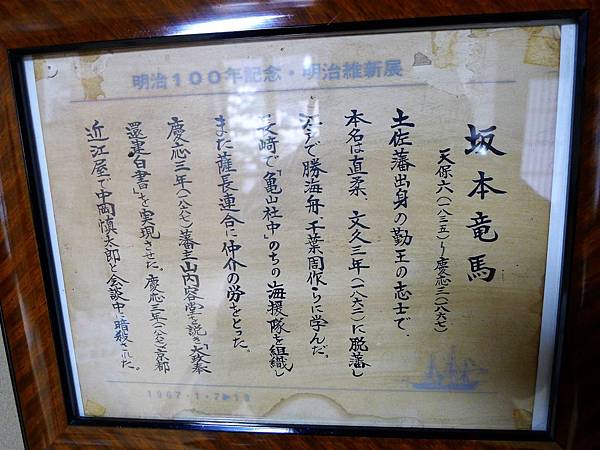 明治100年記念・明治維新展
坂本竜馬
天保六(一八三五)〜慶応三(一八六七)
土佐藩出身の勤王の志士で、
本名は直柔、文久三年(一八六二)に脱藩し
江戸で勝海舟、千葉周作らに学んだ。
長崎で「亀山社中」のちの海援隊を組織し
また薩長連合に仲介の労をとった。
慶応三年(一八六七)藩主山内容堂を説き「大政奉
還建白書」を実現させた。慶応三年(一八六七)京都
近江屋で中岡慎太郎と会談中、暗殺された。
1967・1・7▶18